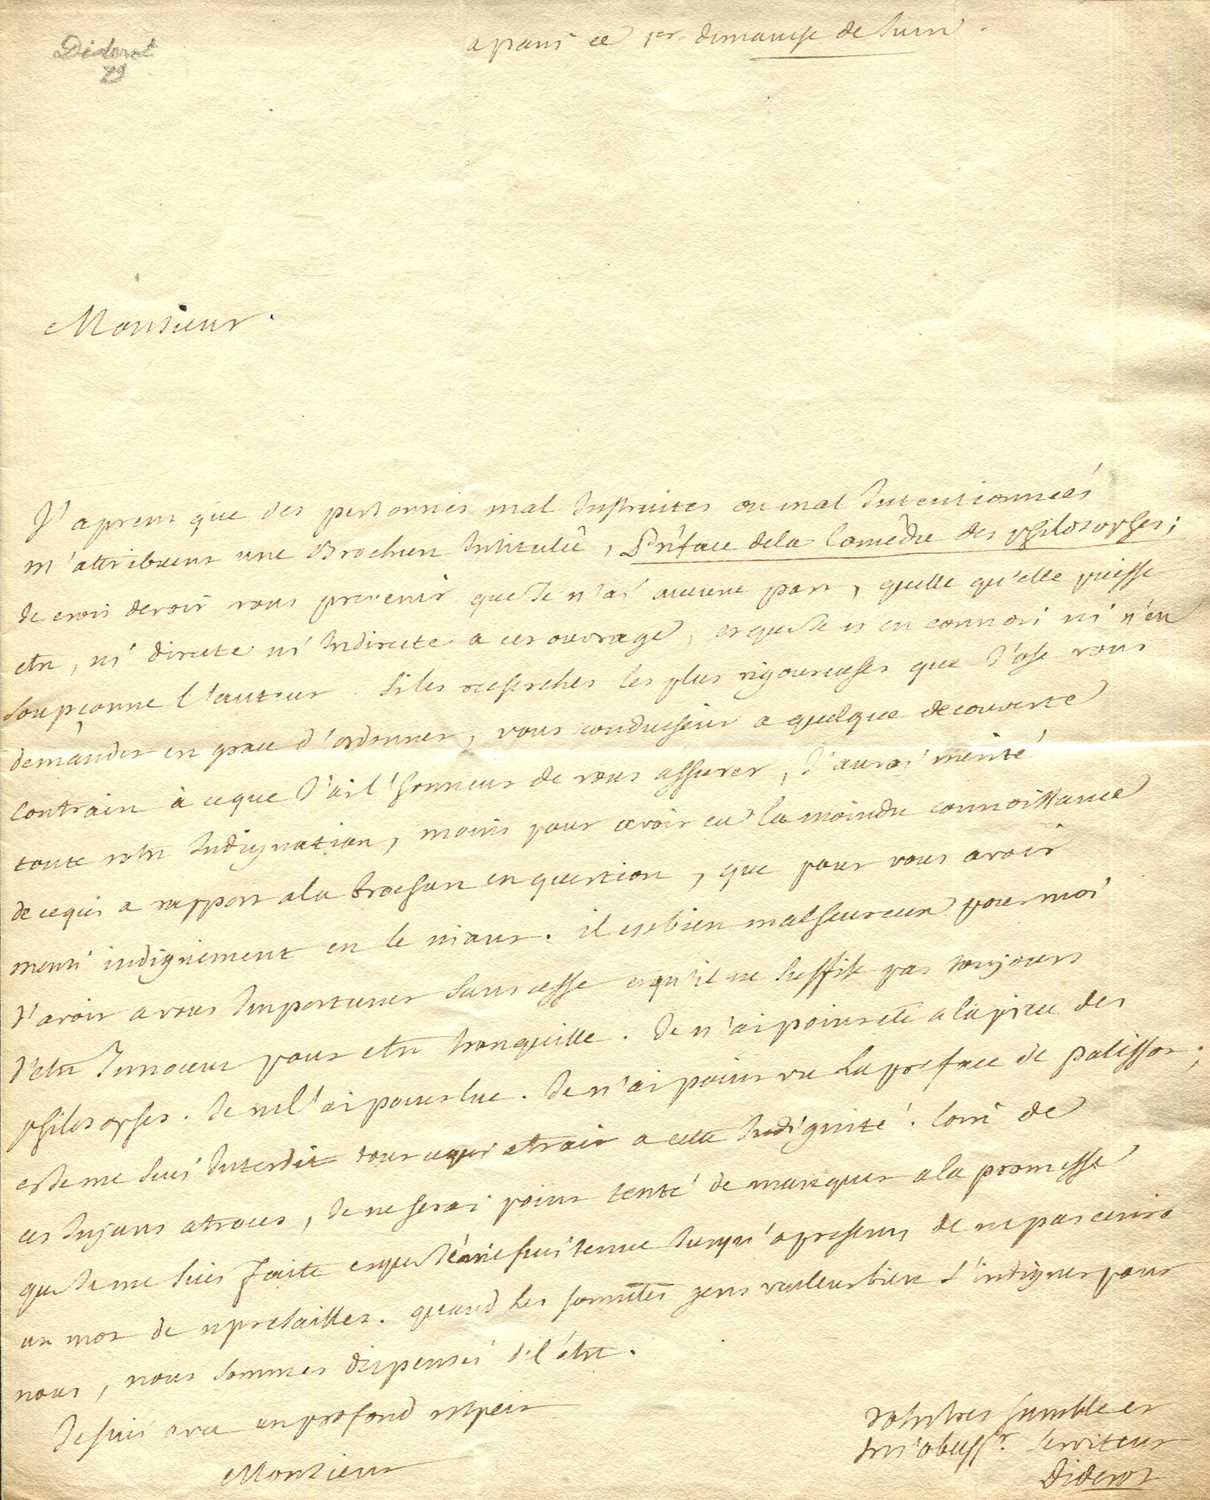 Diderot
79
a paris ce 1er dimanche de Juin.
Monsieur.
J'aprens que des personnes mal Instruites ou mal Intentionnées
m'attribuent une Brochure Intitulée, Préface de la Comédie des philosophes;
Je crois devoir vous prevenir que Je n'ai aucune part, quelle qu'elle puisse
etre, ni directe ni Indirecte a cet ouvrage, et que Je n'en connois ni n'en
soupçonne l'auteur. Si les recherches les plus rigoureuses que J'ose vous
demander en grace d'ordonner, vous conduisent a quelque decouverte
contraire à ce que J'ai l'honneur de vous assurer, J'aurai merité
toute votre Indignation, moins pour avoir eu la moindre connoissance
de ce qui a rapport a la brochure en question, que pour vous avoir
menti indignement en le niant. il est bien malheureux pour moi
d'avoir a vous Importuner sans cesse et qu'il ne suffise pas toujours
d'etre Innocent pour etre tranquille. Je n'ai point été a la piece des
philosophes. Je ne l'ai point lue. Je n'ai point vu la preface de palissot;
et Je me suis Interdit tout ce qui a trait a cette Indignité. loin de
ces Injures atroces, Je ne serai point tenté de manquer a la promesse
que Je me suis faite et que J'ai tenue Jusqu'a present de ne pas ecrire
un mot de represailles. quand les honnêtes gens veulent bien s'indigner pour
nous, nous sommes dispensés de l'être.
Je suis avec un profond respect
Monsieur
votre tres humble et
tres obeisst. serviteur
Diderot